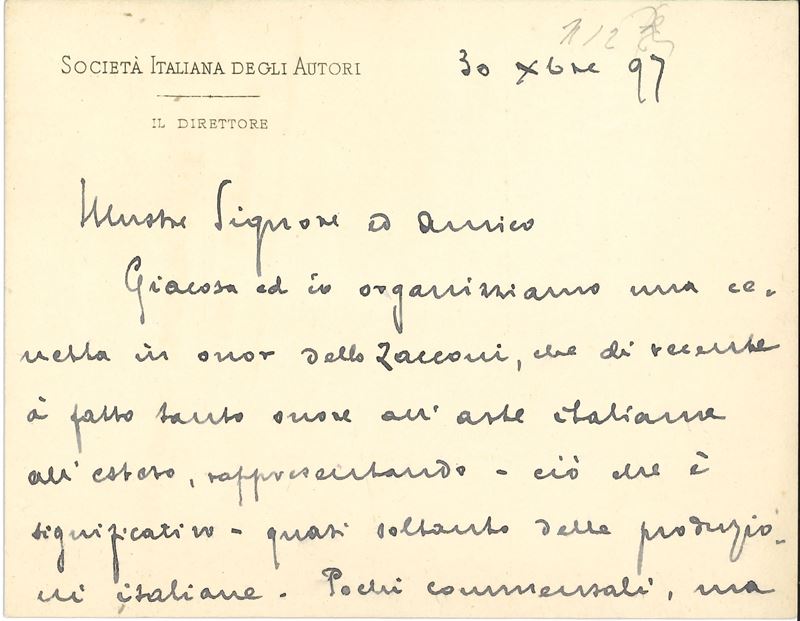 30 Xbre 97
SOCIETÀ ITALIANA DEGLI AUTORI
IL DIRETTORE
Illustre Signore ed amico
Giacosa ed io organizziamo una ce-
netta in onor dello Zacconi, che di recente
à fatto tanto onore all'arte italiana
all'estero, rappresentando - ciò che è
significativo - quasi soltanto delle produzio-
ni italiane. Pochi commensali, ma